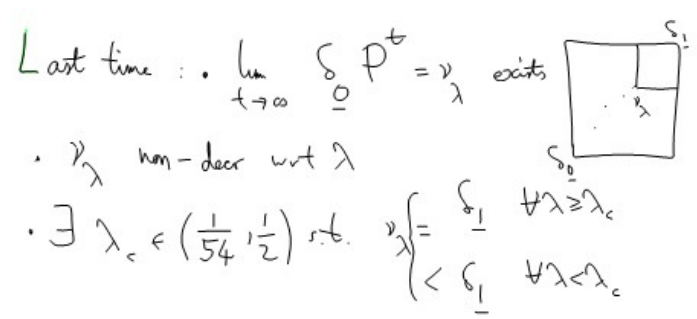 Last time : · lim_{t→∞} δ_0 P^t = ν_λ exists
· ν_λ non-decr wrt λ
· ∃ λ_c ∈ (1/54, 1/2) s.t. ν_λ { = δ_1 ∀λ≥λ_c
< δ_1 ∀λ<λ_c
δ_1
ν_λ
δ_0